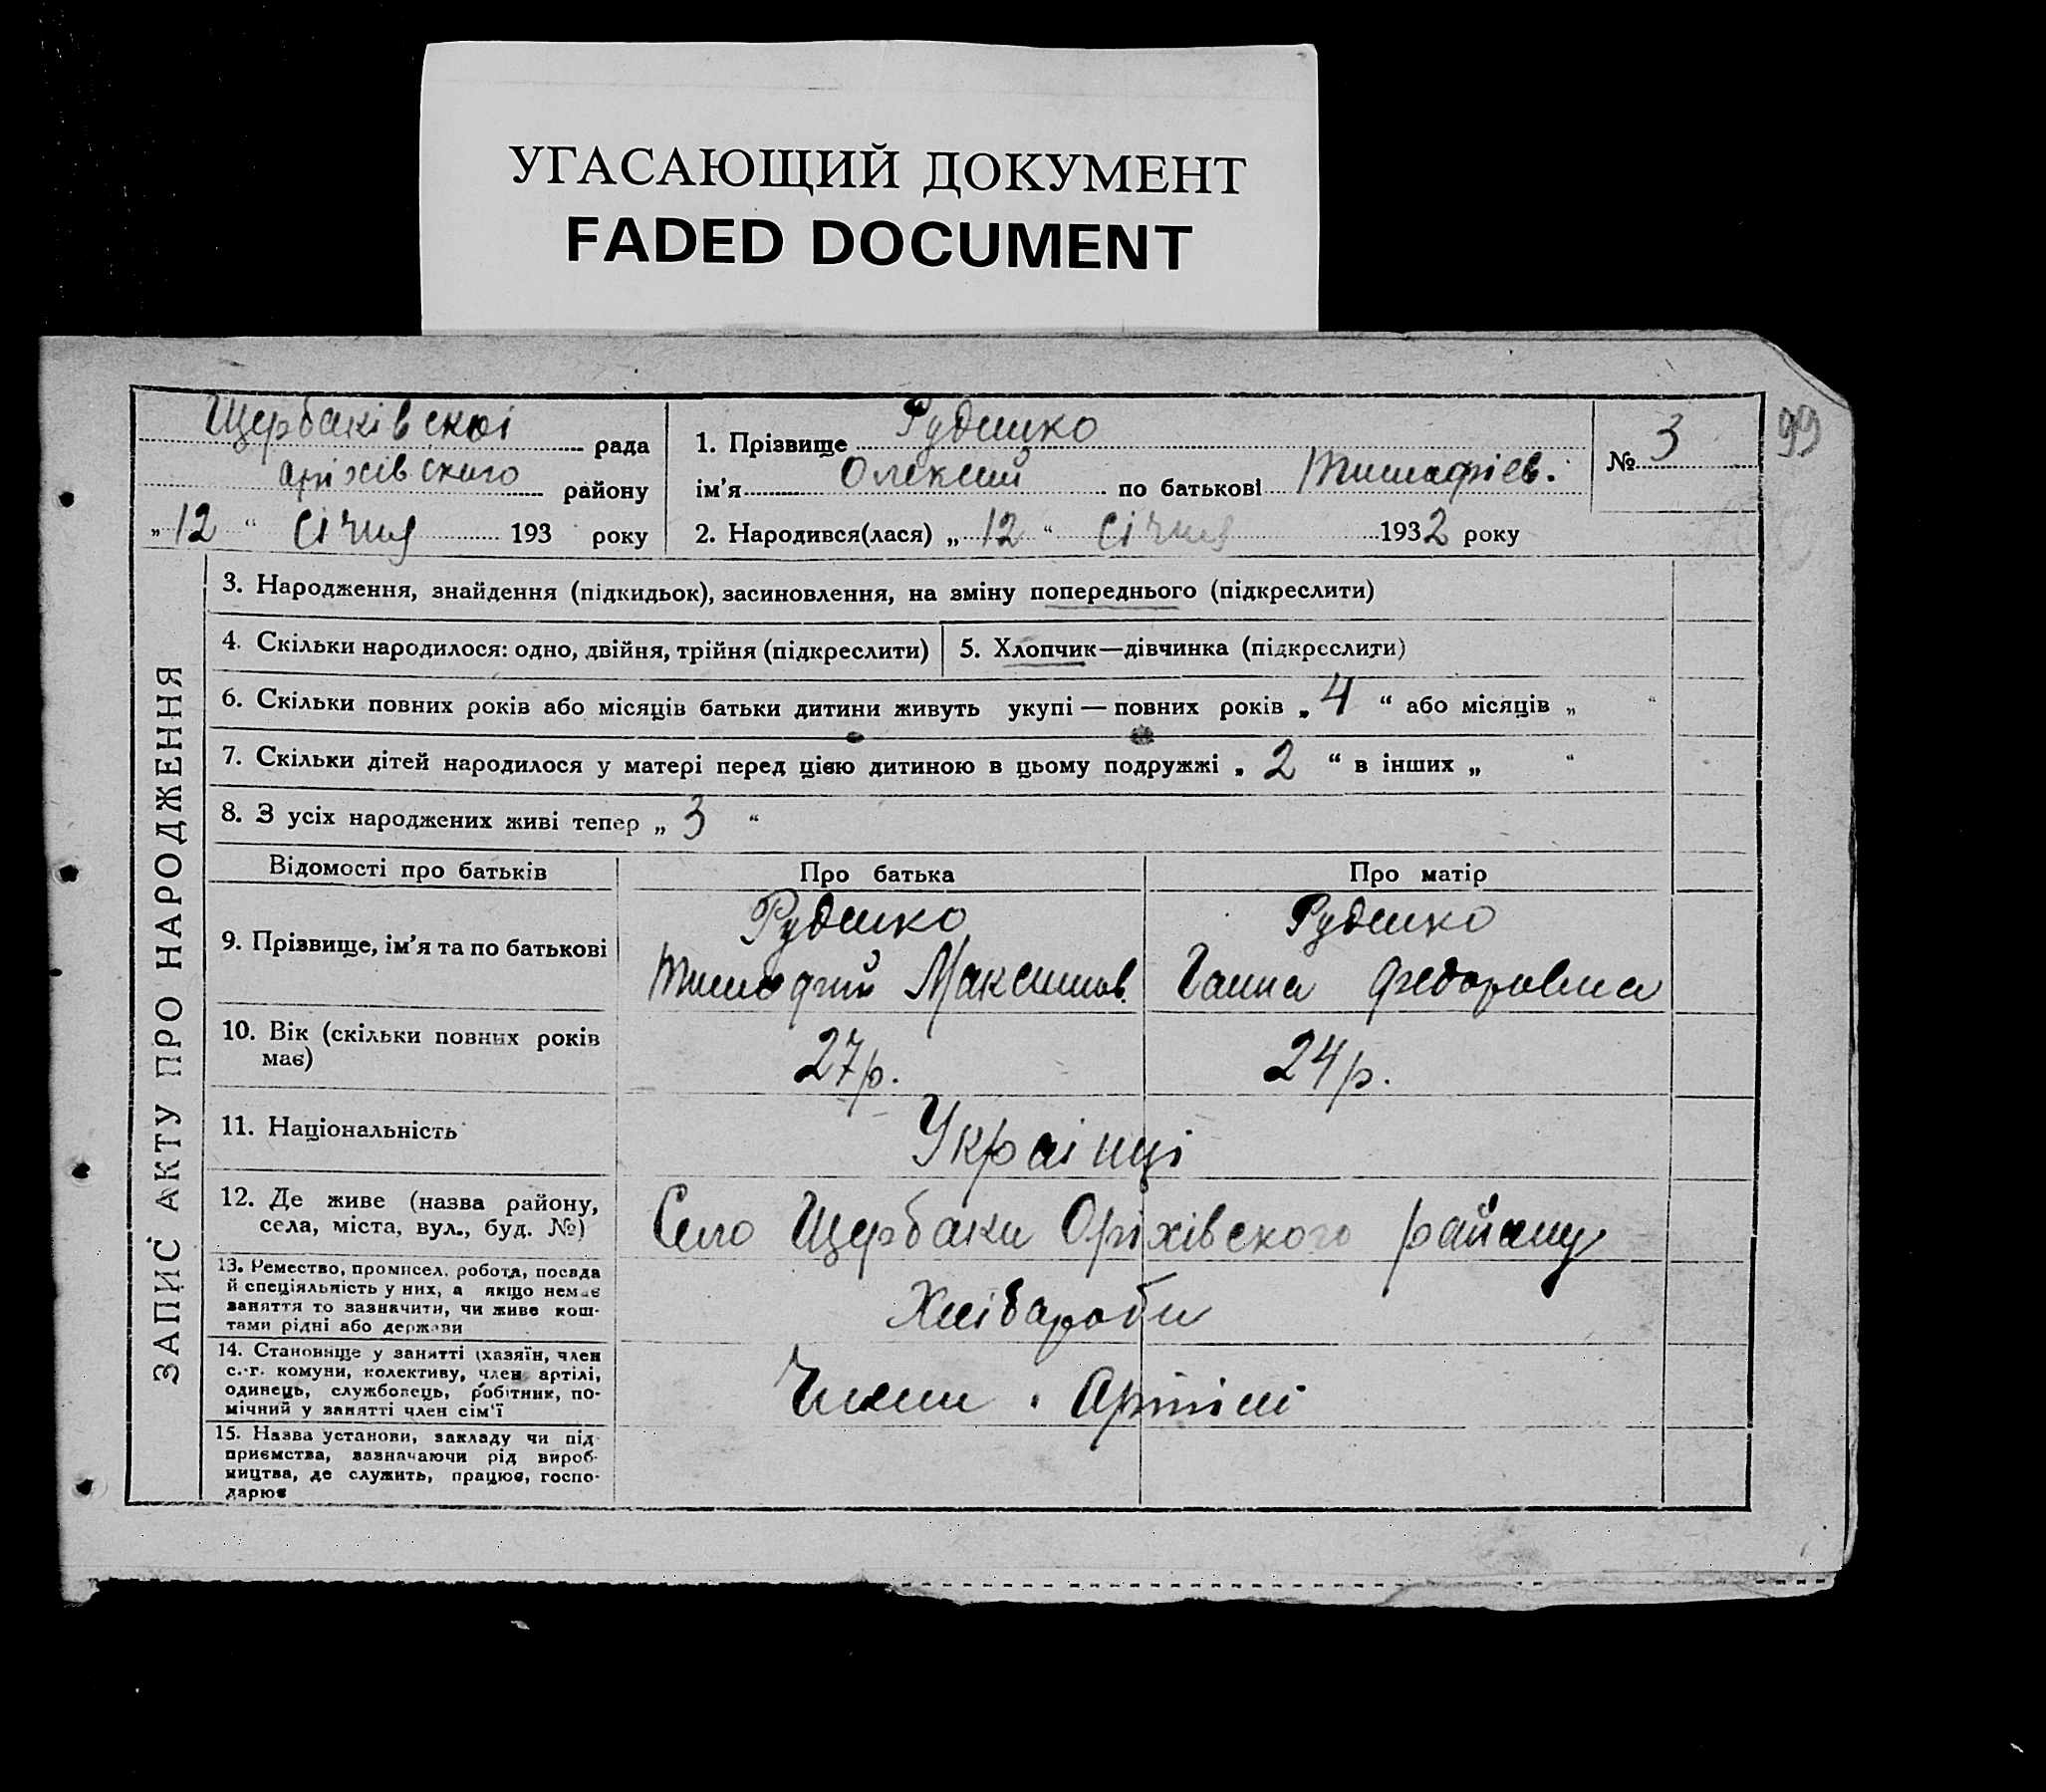 УГАСАЮЩИЙ ДОКУМЕНТ
FADED DOCUMENT
Щербаківскоі рада
аріхівского району
„12“ Січня 193 року
1. Прізвище Руденко
ім’я Олексий по батькові Тимофієв.
№ 3
99
2. Народився(лася) „12“ Січня 1932 року
ЗАПИС АКТУ ПРО НАРОДЖЕННЯ
3. Народження, знайдення (підкидьок), засиновлення, на зміну попереднього (підкреслити)
4. Скільки народилося: одно, двійня, трійня (підкреслити)
5. Хлопчик—дівчинка (підкреслити)
6. Скільки повних років або місяців батьки дитини живуть укупі — повних років „4“ або місяців „ “
7. Скільки дітей народилося у матері перед цією дитиною в цьому подружжі „2“ в інших „ “
8. З усіх народжених живі тепер „3“
Відомості про батьків
Про батька
Про матір
9. Прізвище, ім’я та по батькові
Руденко
Тимофий Максимов.
Руденко
Ганна Федоровна
10. Вік (скільки повних років
має)
27р.
24р.
11. Національність
Украінці
12. Де живе (назва району,
села, міста, вул., буд. №)
Село Щербаки Оріхівского району
13. Ремество, промисел, робота, посада
й спеціяльність у них, а якщо немає
заняття то зазначити, чи живе кош-
тами рідні або держави
Хлібароби
14. Становище у занятті (хазяїн, член
с.-г. комуни, колективу, член артілі,
одинець, службовець, робітник, по-
мічний у занятті член сім’ї
Члени Артілі
15. Назва установи, закладу чи під-
приємства, зазначаючи рід вироб-
ництва, де служить, працює, госпо-
дарює